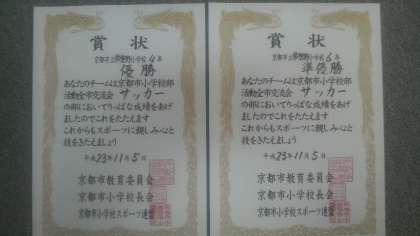 賞状
京都市立 小学校4年
優勝
あなたのチームは京都市小学校部
活動全市交流会 サッカー
の部においてりっぱな成績をあげ
ましたのでこれをたたえます
これからもスポーツに親しみ心と
技をきたえましょう
平成23年11月5日
京都市教育委員会
京都市小学校長会
京都市小学校スポーツ連盟
賞状
京都市立 小学校6年
準優勝
あなたのチームは京都市小学校部
活動全市交流会 サッカー
の部においてりっぱな成績をあげ
ましたのでこれをたたえます
これからもスポーツに親しみ心と
技をきたえましょう
平成23年11月5日
京都市教育委員会
京都市小学校長会
京都市小学校スポーツ連盟